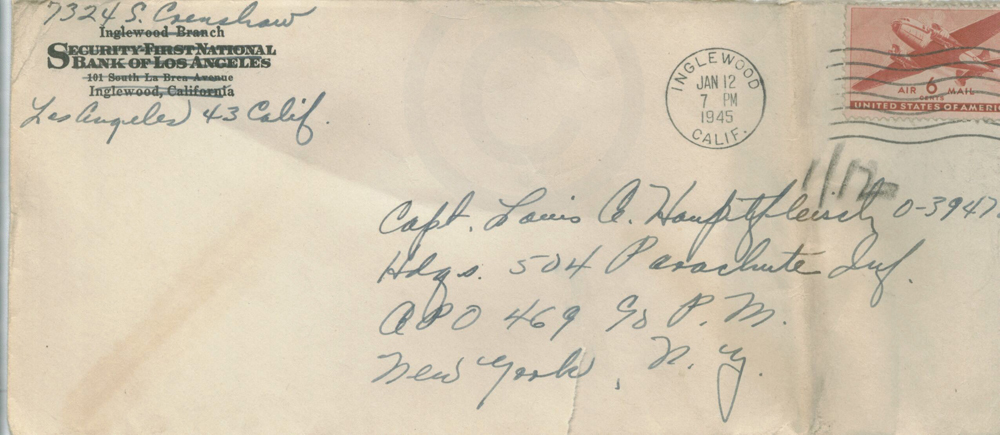 7324 S. Crenshaw
Inglewood Branch
SECURITY-FIRST NATIONAL
BANK OF LOS ANGELES
101 South La Brea Avenue
Inglewood, California
Los Angeles 43 Calif.
INGLEWOOD
JAN 12
7 PM
1945
CALIF.
AIR 6 MAIL
CENTS
UNITED STATES OF AMERIC
1/12
Capt. Louis A. Hauptfleisch O-3947
Hdqs. 504 Parachute Inf.
APO 469 c/o P.M.
New York, N.Y.